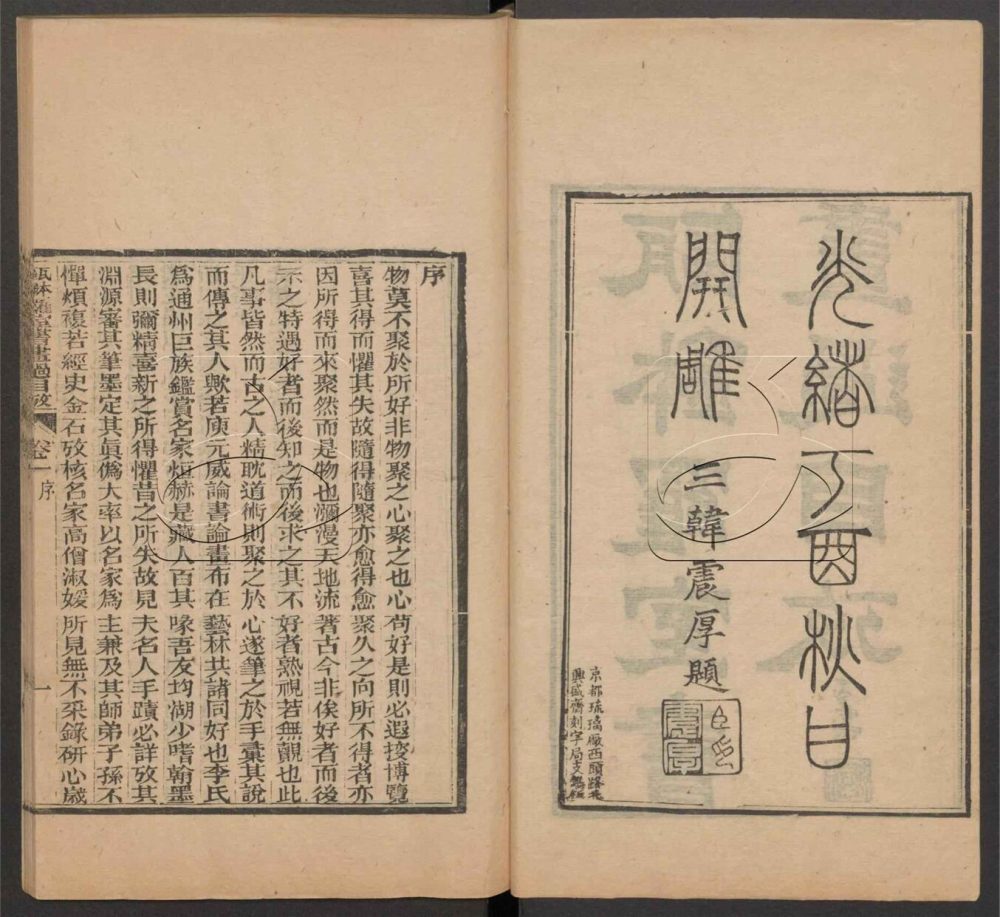 光緒丁酉秋日
開雕
三韓震厚題
京都琉璃廠西頭路北
興盛齋刻字局
序
物莫不聚於所好非物聚之心聚之也心苟好是則必遐搜博覽
喜其得而懼其失故隨得隨聚亦愈得愈聚久之向所不得者亦
因所得而來聚然而是物也瀰漫天地流著古今非俟好者而後
示之特遇好者而後知之而後求之其不好者熟視若無覩也此
凡事皆然而古之人精耽道術則聚之於心遂筆之於手彙其說
而傳之其人歟若庾元威論書論畫布在藝林共諸同好也李氏
為通州巨族鑑賞名家烜赫是藏人百其喙吾友均湖少嗜翰墨
長則彌精喜新之所得懼昔之所失故見夫名人手蹟必詳攷其
淵源審其筆墨定其眞僞大率以名家為主兼及其師弟子孫不
憚煩複若經史金石攷核名家高僧淑媛所見無不采錄研心歲
甌鉢羅室書畫過目攷 卷一 序 一